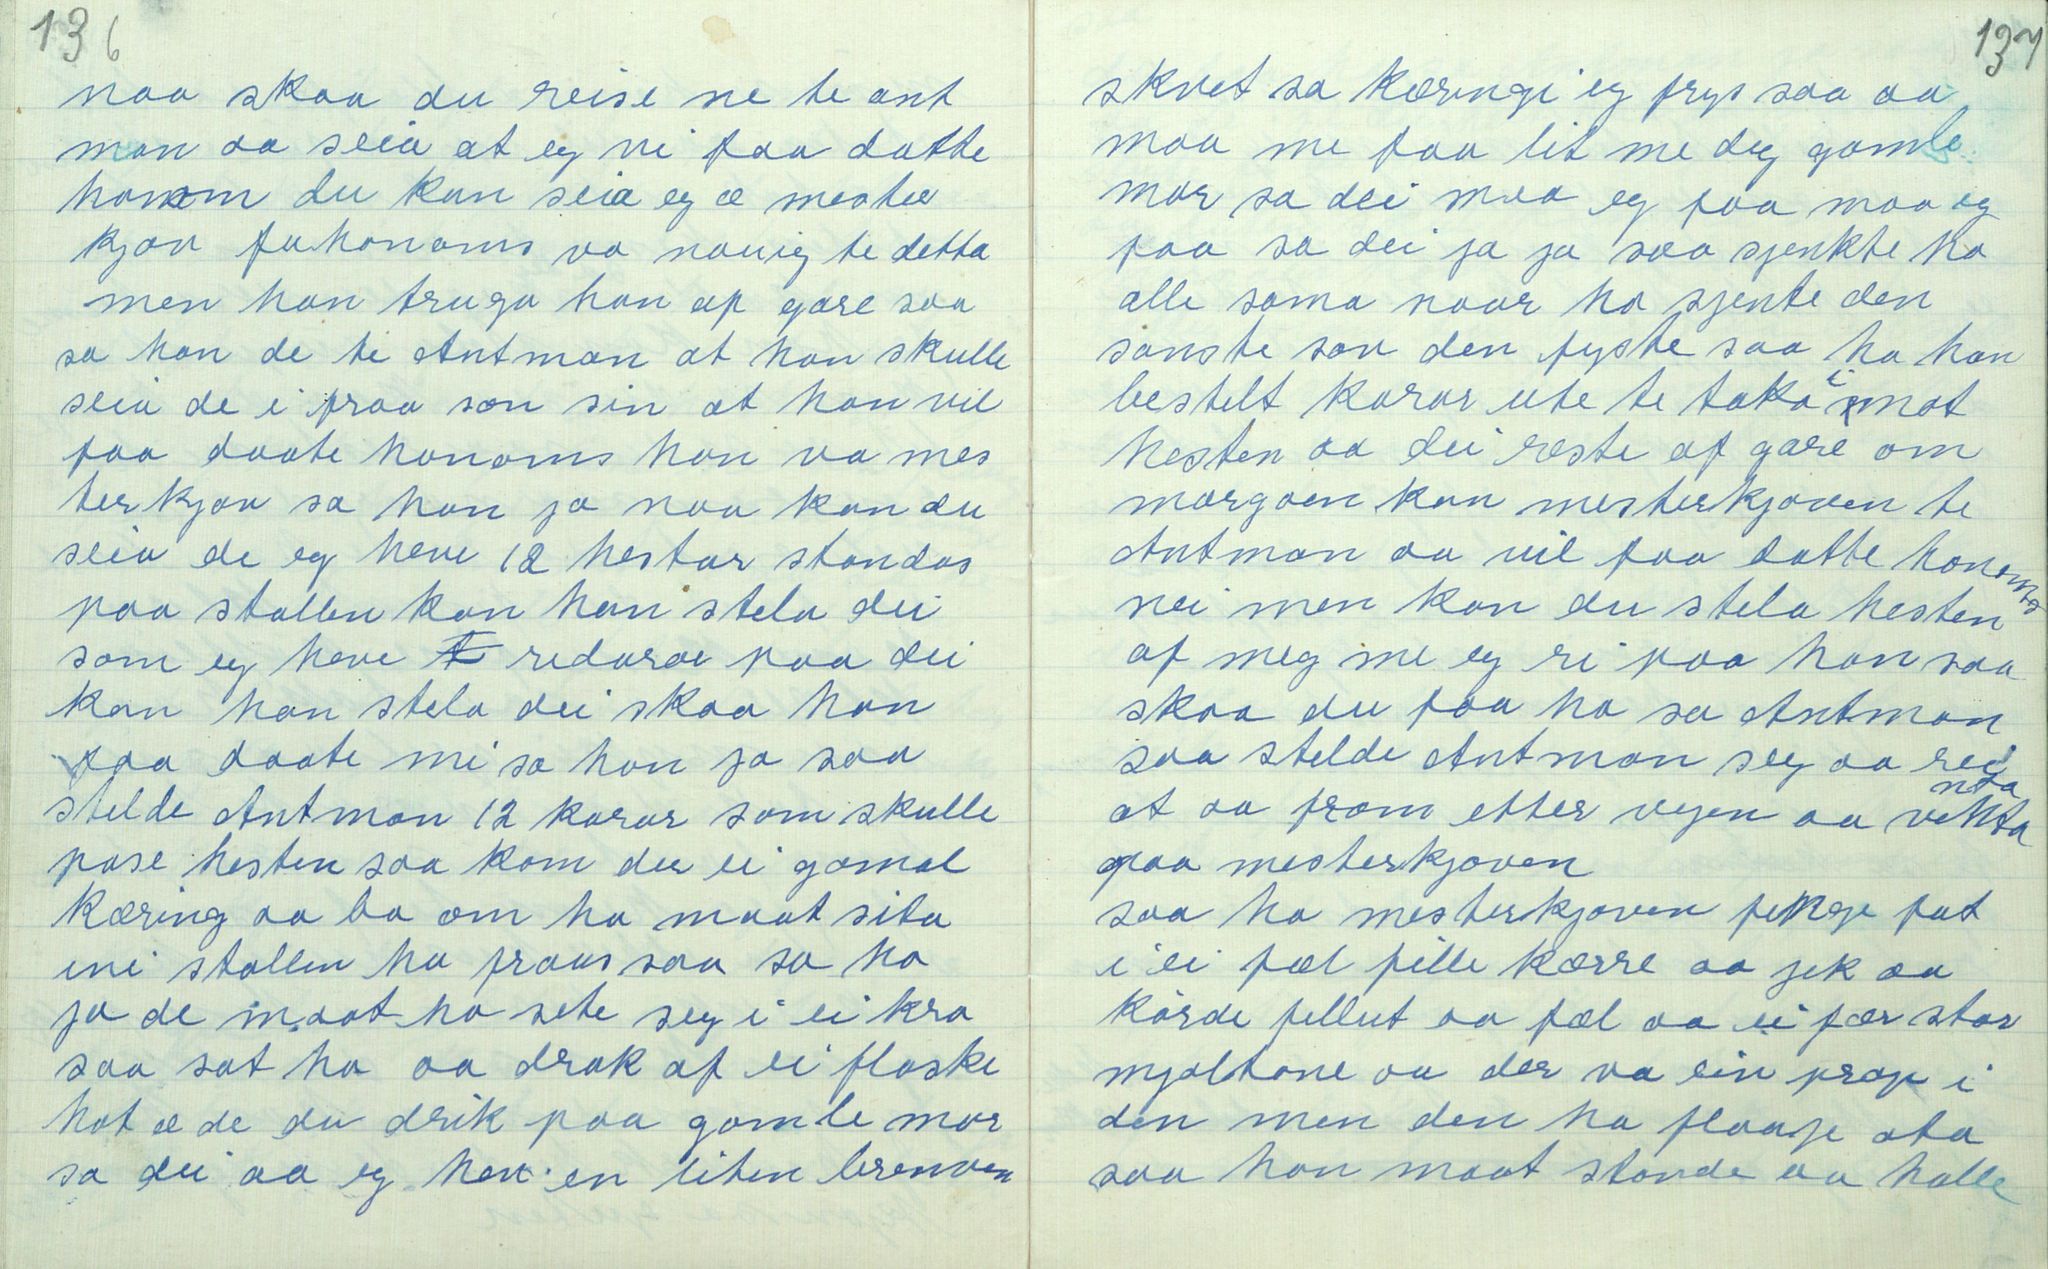 136
naa skaa du reise ne te ant
man aa seia at eg vi faa datte
honom du kan seia eg æ mester
kjov fa honoms va nauig te detta
men han truga han af gare saa
sa han de te Antman at han skulle
seia de i fraa son sin at han vil
faa daate honoms han va mes
terkjov sa han ja naa kan du
seia de eg heve 12 hestar standas
paa stallen kan han stela dei
som eg heve redarar paa dei
kan han stela dei skaa han
faa daate mi sa han ja saa
stelde Antman 12 karar som skulle
pase hesten saa kom der ei gamal
kæring aa ba om ho maat sita
ini stallen ho fraus saa sa ho
ja de maat ho sete seg i ei kra
saa sat ho aa drak af ei flaske
hot æ de du drik paa gamle mor
sa dei aa eg hev en liten brenven
137
skvet sa kæringi eg frys saa aa
maa me faa lit me deg gamle
mor sa dei maa eg faa maa og
faa sa dei ja ja saa sjenkte ho
alle sama naar ho sjente den
sanste sov den fyste saa ha han
bestelt karar ute te taka imot
hesten aa dei reste af gare om
morgoen kan mesterkjoven te
Antman aa vil faa datte honoms
nei men kan du stela hesten
af meg me eg ri paa han saa
skaa du faa ho sa Antman
saa stelde Antman seg aa rei
at aa fram etter vejen aa venta
paa mesterkjoven
saa ha mesterkjoven fenge fat
i ei fæl fille kærre aa jek aa
kórde fellut aa fæl aa ei fær stor
mjoltone aa der va ein prop i
den men den ha flaaje ota
saa han maat stande aa halle